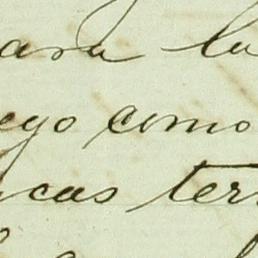 ara la
ego como
icas ter